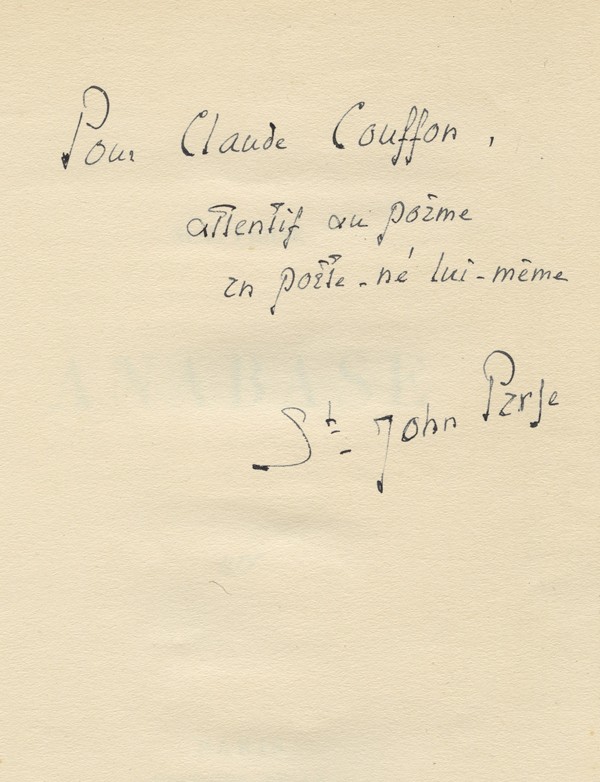 Pour Claude Couffon,
attentif au poème
en poète-né lui-même
St-John Perse
ANABASE